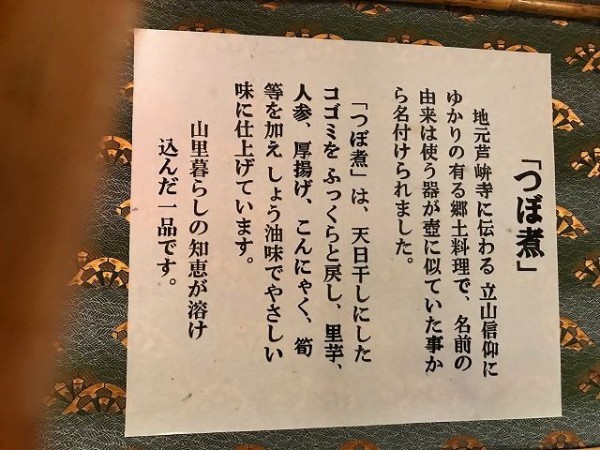 「つぼ煮」
地元芦峅寺に伝わる 立山信仰に
ゆかりの有る郷土料理で、名前の
由来は使う器が壺に似ていた事か
ら名付けられました。
「つぼ煮」は、天日干しにした
コゴミを ふっくらと戻し、里芋、
人参、厚揚げ、こんにゃく、筍
等を加え しょう油味でやさしい
味に仕上げています。
山里暮らしの知恵が溶け
込んだ一品です。